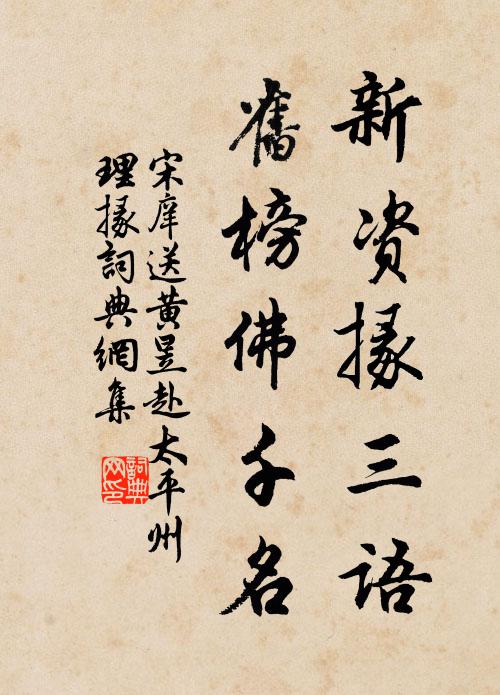 新资掾三语
舊榜佛千名
宋庠送黄昱赴太平州
理掾詞典網集
詞典網印